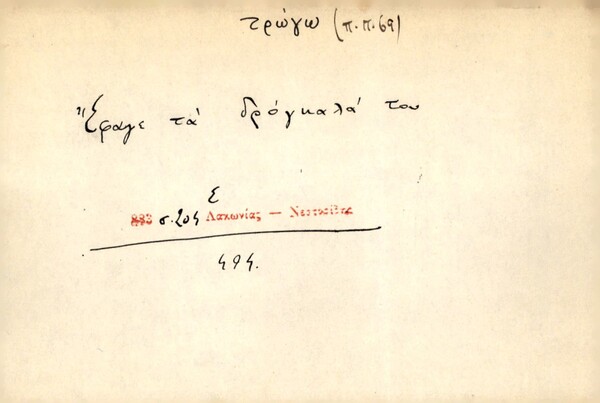 τρώγω (π.π. 69)
Ἔφαγε τά δρόγκαλά του
Σ
883 σ. 204 Λακωνίας —
494.